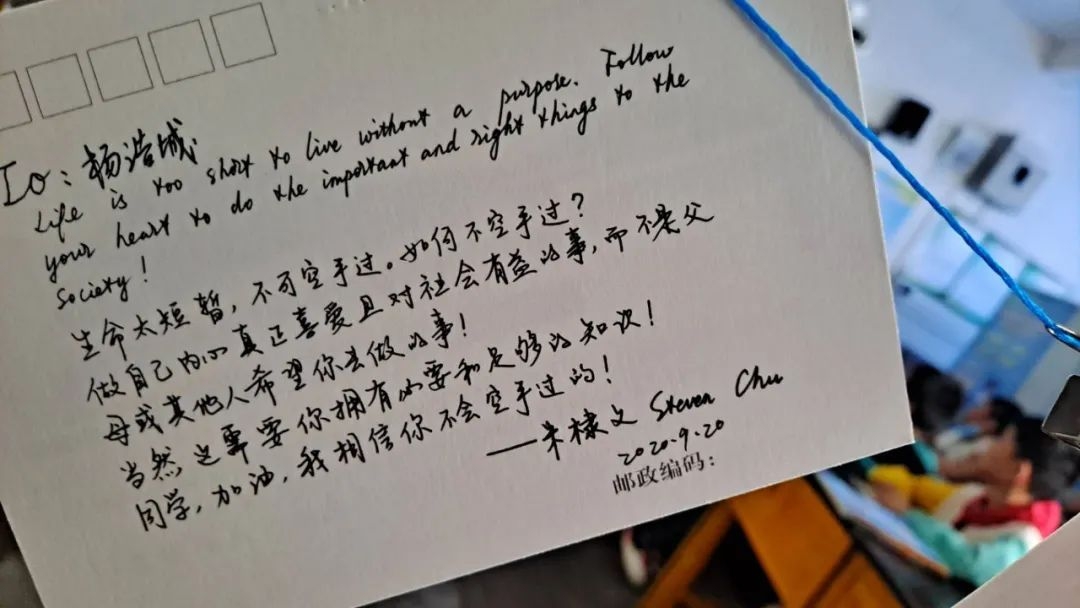 To: 杨浩城
Life is too short to live without a purpose. Follow
your heart to do the important and right things to the
society!
生命太短暂,不可空手过。如何不空手过?
做自己内心真正喜爱且对社会有益的事,而不是父
母或其他人希望你去做的事!
当然这单要你拥有必要和足够的知识!
同学,加油,我相信你不会空手过的!
——朱棣文 Steven Chu
2020.9.20
邮政编码: